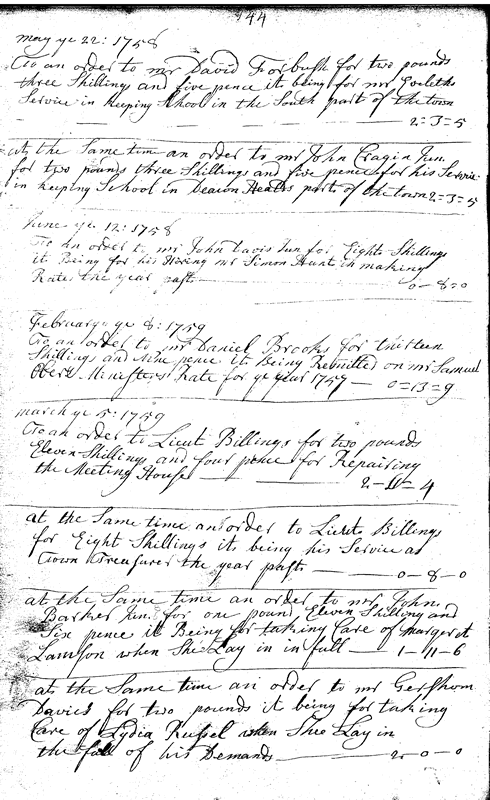 144
may ye 22: 1758
To an order to mr David Forbush for two pounds
three Shillings and five pence it being for mr Eveleths
Service in Keeping School in the South part of the town
2=3=5
at the Same time an order to mr John Cragin Jun.
for two pounds three Shillings and five pence for his Service
in keeping School in Deacon Heald's part of the town 2=3=5
June ye 12: 1758
To an order to mr John Davis Jun for Eight Shillings
it Being for his Having mr Simon Hunt in making
Rates the year past 0-8=0
February ye 8: 1759
To an order to mr Daniel Brooks for thirteen
Shillings and Nine pence it Being Remitted on mr Samuel
Ministers Rate for ye year 1757 — 0=13=9
march ye 5: 1759
To an order to Lieut Billings for two pounds
Eleven Shillings and four pence for Repairing
the Meeting House 2-11-4
at the Same time an order to Lieut Billings
for Eight Shillings it being his Service as
Town Treasurer the year past — 0-8-0
at the Same time an order to mr John
Barker Jun. for one pound Eleven Shilling and
Six pence it Being for taking Care of margeret
Lamson when She Lay in in full 1-11-6
at the Same time an order to mr Gershom
Davies for two pounds it being for taking
Care of Lydia Russel when Shee Lay in
the full of his Demands — 2-0-0